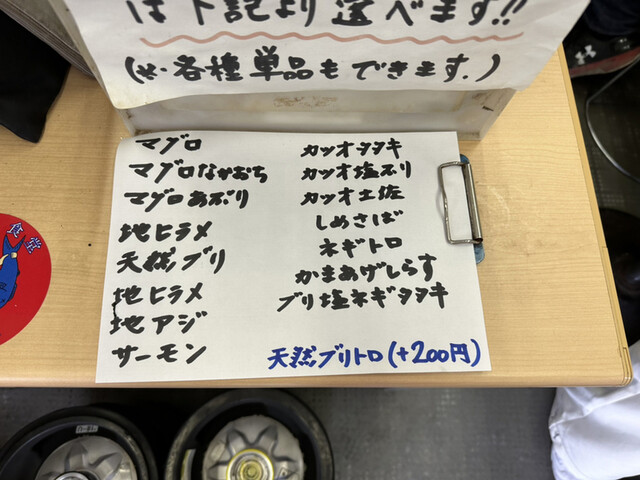 は下記より選べます!!
(※各種単品もできます.)
マグロ
マグロなかおち
マグロあぶり
地ヒラメ
天然ブリ
地ヒラメ
地アジ
サーモン
カツオタタキ
カツオ塩ネリ
カツオ土佐
しめさば
ネギトロ
かまあげしらす
ブリ塩ネギタタキ
天然ブリトロ(+200円)
食堂